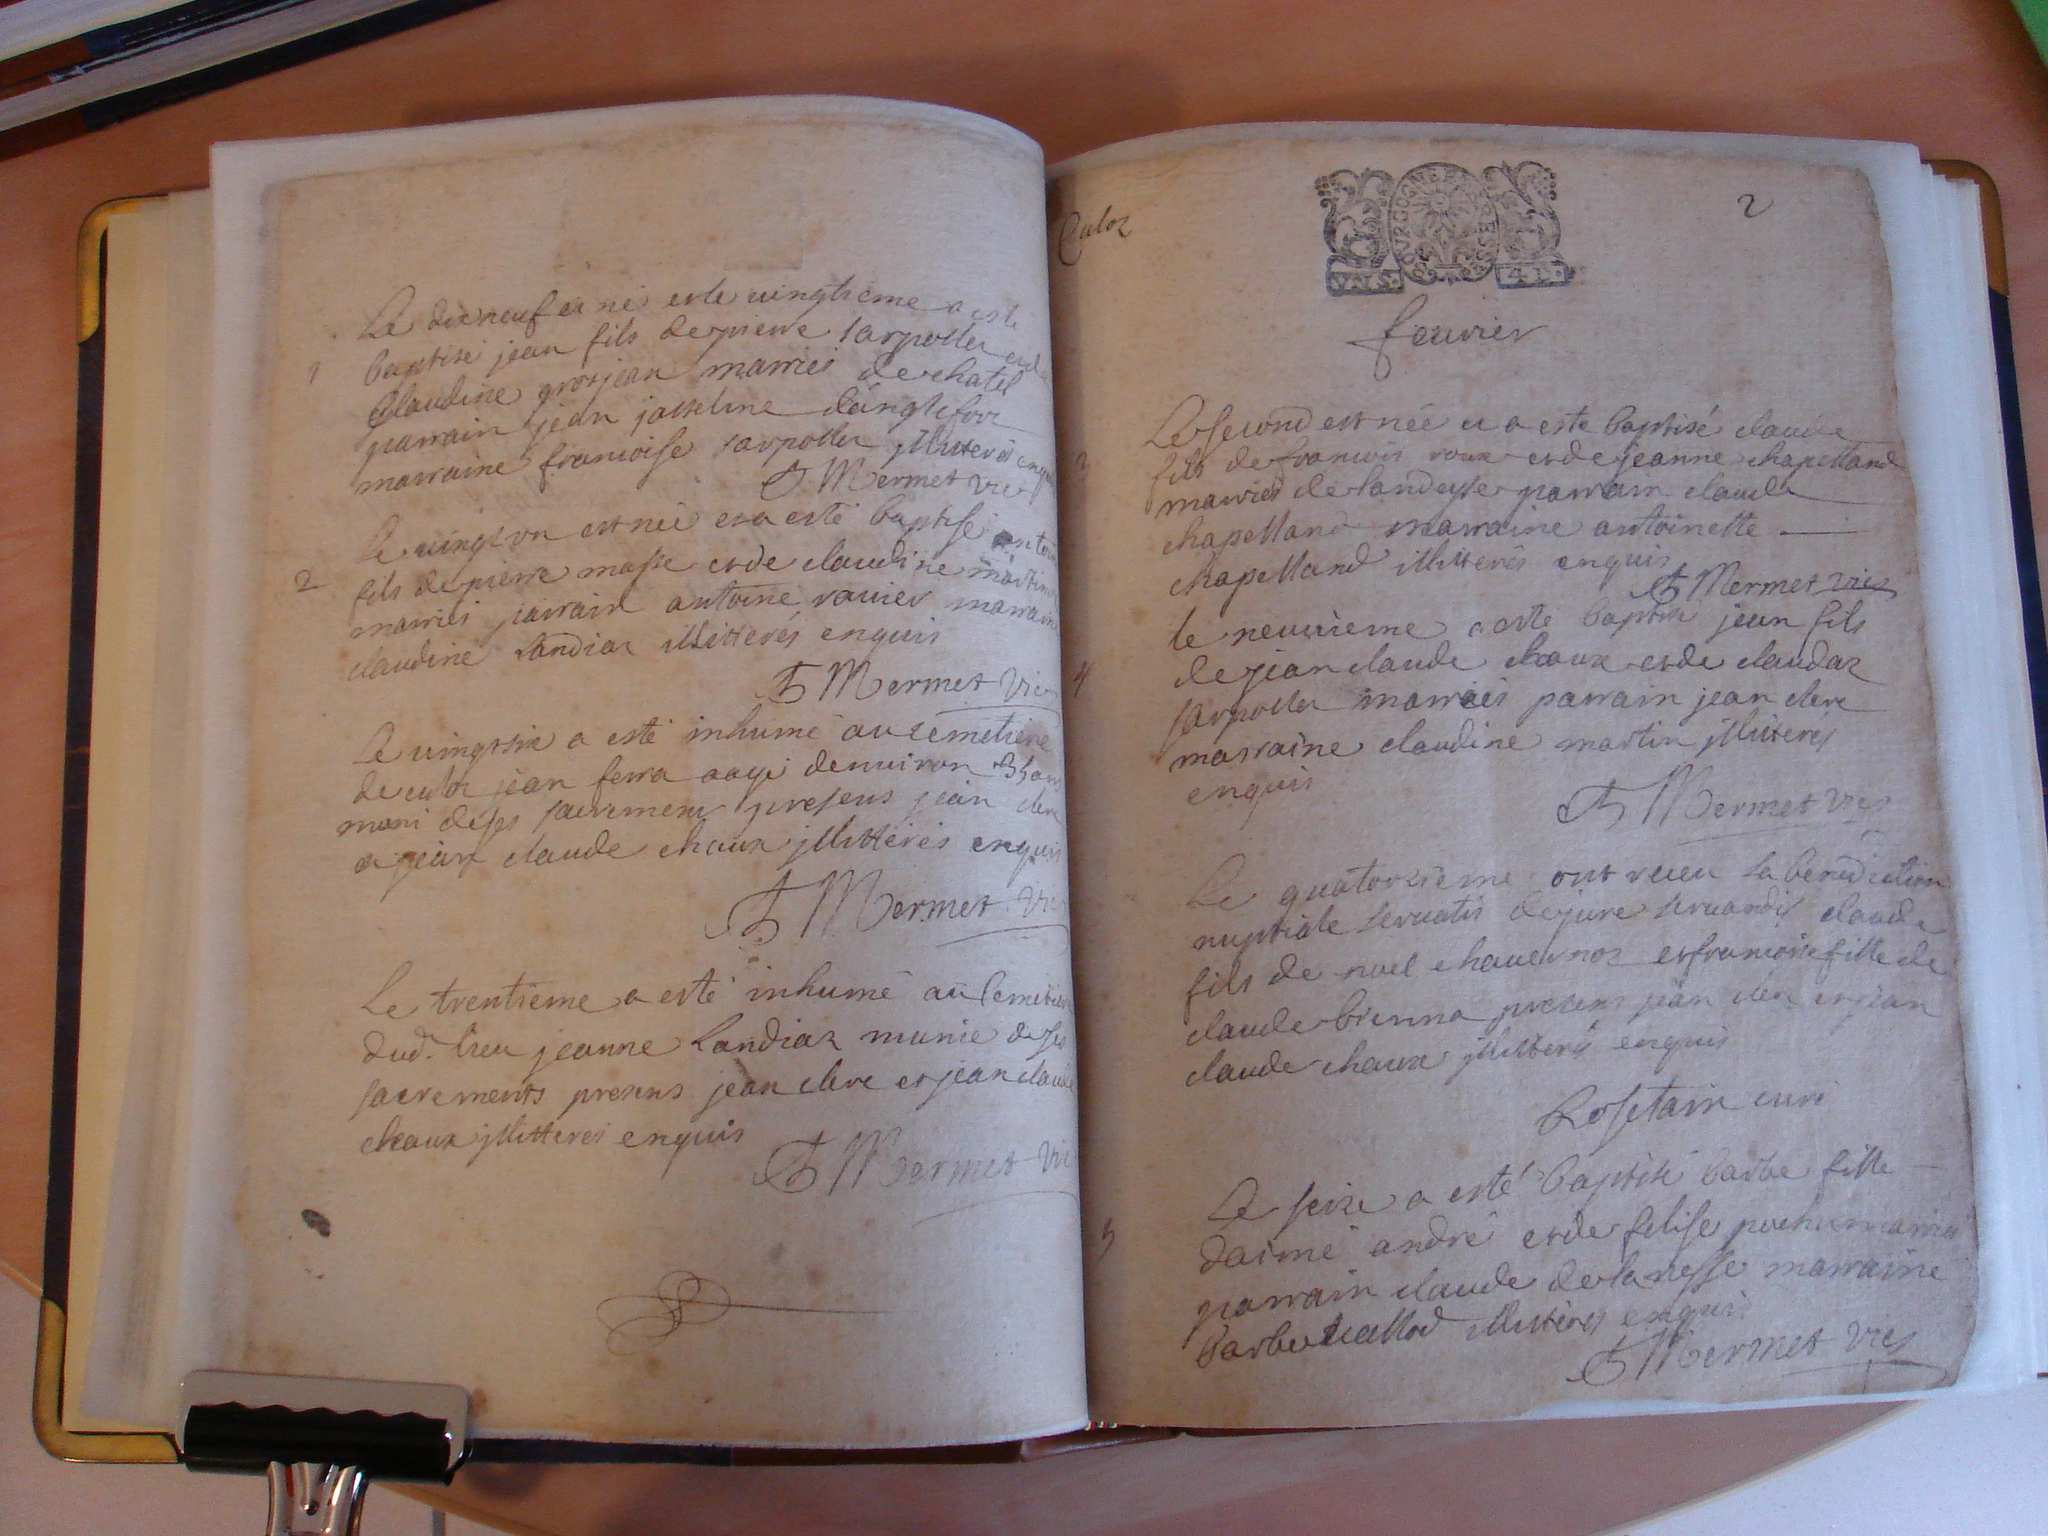 Le dixneuf est né et le uingtieme a esté
1
baptisé jean fils de pierre sarpollet et de
Claudine grosjean marriés de chatel
parrain jean josseline d'anglefort
marraine francoise sarpollet illitterés enquis
A Mermet vic
Le uingt un est né et a esté baptisé antoine
2
fils de pierre masse et de claudine martin
marriés parrain antoine rauier marraine
claudine Landiaz illitterés enquis
A Mermet vic
Le uingt six a esté inhumé au cemetiere
de culoz jean ferra aagé d'enuiron 35 ans
muni de ses sacremens presens jean clerc
et jean claude chaux illitterés enquis
A Mermet vic
Le trentieme a esté inhumé au cemetiere
dud. lieu jeanne Landiaz munie de ses
sacrements presens jean clerc et jean claude
chaux illitterés enquis
A Mermet vic
Culoz
BOURGOGNE ET BRESSE
4 D.
2
feurier
Le second est né et a esté baptisé claude
3
fils de francois roux et de jeanne chapelland
marriés de landeysse parrain claude
chapelland marraine antoinette
chapelland illitterés enquis
A Mermet vic
le neuuieme a esté baptisé jean fils
4
de jean claude chaux et de claudaz
sarpollet marriés parrain jean clerc
marraine claudine martin illitterés
enquis
A Mermet vic
Le quatorzieme ont receu la benediction
nuptiale seruatis de jure seruandis claude
fils de noel chauernoz et francoise fille de
claude brunna presens jean clerc et jean
claude chaux illitterés enquis
Rosetain curé
Le seize a esté baptisé barbe fille
5
d'aimé andré et de felise marriés
parrain claude de lanesse marraine
barbe illitterés enquis
A Mermet vic